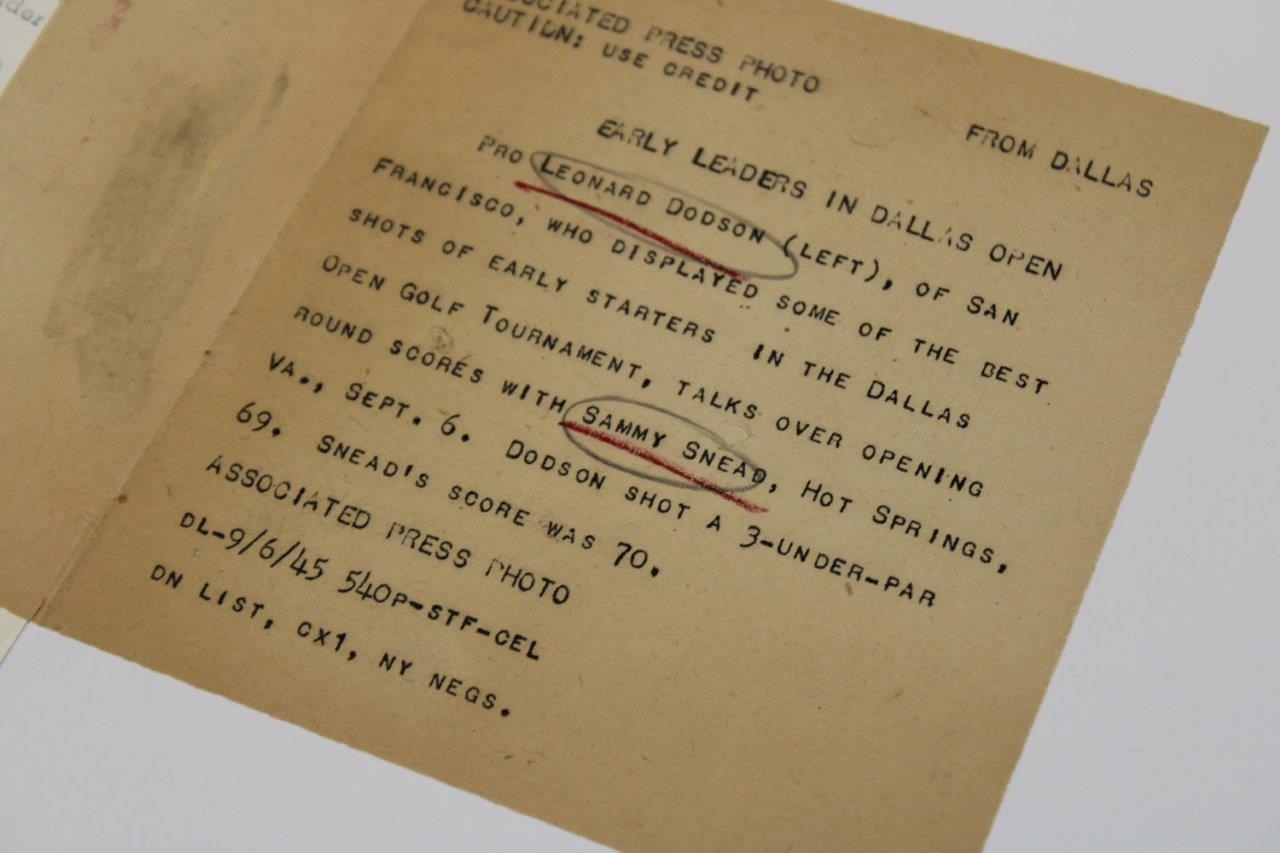 ASSOCIATED PRESS PHOTO
CAUTION: USE CREDIT
FROM DALLAS
EARLY LEADERS IN DALLAS OPEN
PRO LEONARD DODSON (LEFT), OF SAN
FRANCISCO, WHO DISPLAYED SOME OF THE BEST
SHOTS OF EARLY STARTERS IN THE DALLAS
OPEN GOLF TOURNAMENT, TALKS OVER OPENING
ROUND SCORES WITH SAMMY SNEAD, HOT SPRINGS,
VA., SEPT. 6. DODSON SHOT A 3-UNDER-PAR
69. SNEAD'S SCORE WAS 70.
ASSOCIATED PRESS PHOTO
DL-9/6/45 540P-STF-CEL
DN LIST, CX1, NY NEGS.